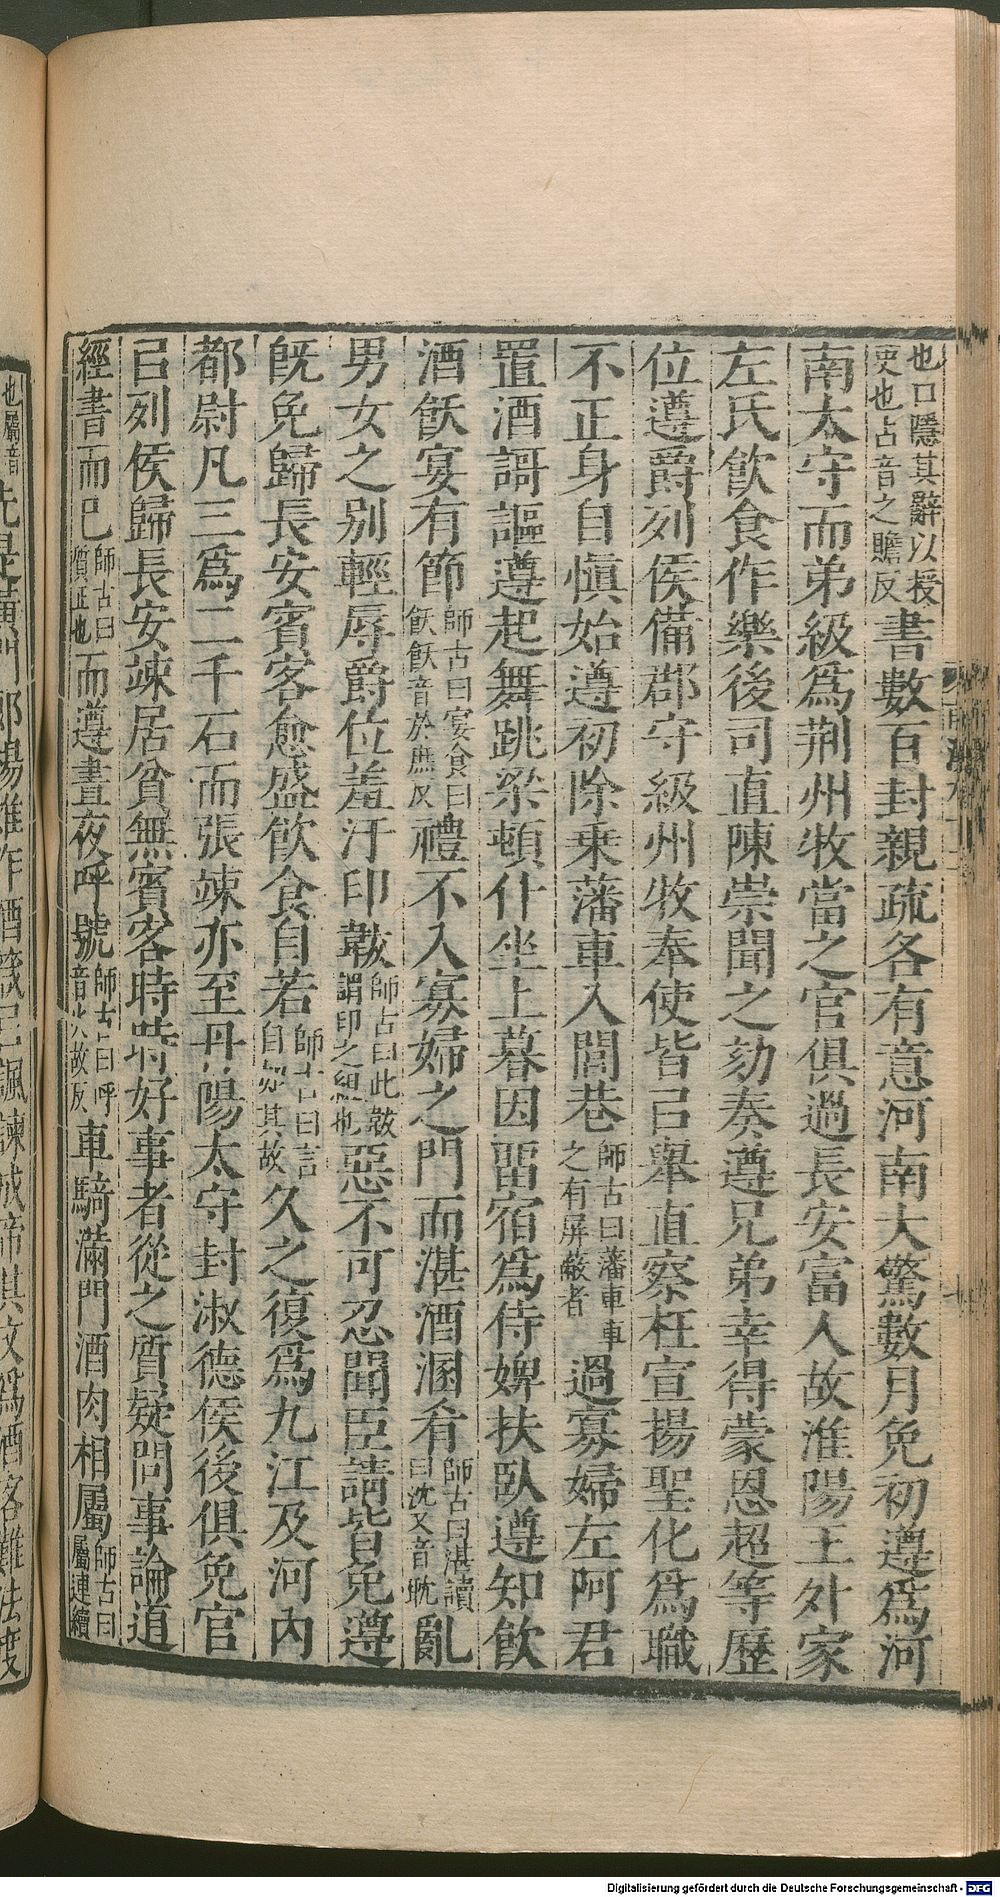 也口隱其辭以授吏也占音之贍反書數百封親疏各有意河南大驚數月免初遵爲河
南太守而弟級爲荆州牧當之官俱過長安富人故淮陽王外家
左氏飲食作樂後司直陳崇聞之劾奏遵兄弟幸得蒙恩超等歷
位遵爵列侯備郡守級州牧奉使皆㠯舉直察枉宣揚聖化爲職
不正身自愼始遵初除乗藩車入閭巷師古曰藩車車之有屏蔽者過寡婦左阿君
置酒謌謳遵起舞跳梁頓仆坐上暮因畱宿爲侍婢扶臥遵知飲
酒飫宴有節師古曰宴食曰飫飫音於庶反禮不入寡婦之門而湛酒溷肴師古曰湛讀曰沈又音耽亂
男女之别輕辱爵位羞汙印韍師古曰此韍謂印之組也惡不可忍聞臣請皆免遵
旣免歸長安賓客愈盛飲食自若師古曰言自如其故久之復爲九江及河內
都尉凡三爲二千石而張竦亦至丹陽太守封淑德侯後俱免官
㠯列侯歸長安竦居貧無賓客時時好事者從之質疑問事論道
經書而已師古曰質正也而遵晝夜呼號師古曰呼音火故反車騎滿門酒肉相屬師古曰屬連續
也屬音先是黄門郎揚雄作酒箴㠯諷諫成帝其文爲酒客難法度
Digitalisierung gefördert durch die Deutsche Forschungsgemeinschaft - DFG